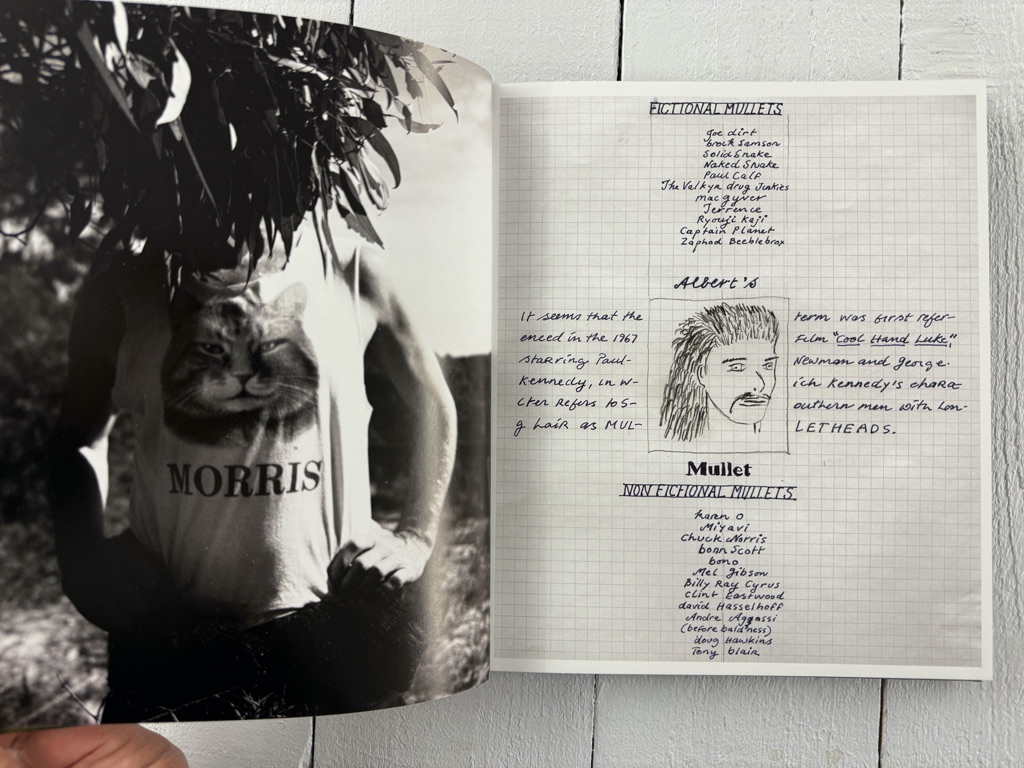 MORRIS
FICTIONAL MULLETS
Joe dirt
brock Samson
Solid Snake
Naked Snake
Paul Calf
The Valkyn drug Junkies
macgyver
Terrence
Ryouji Kaji
Captain Planet
Zaphod Beeblebrox
Albert's
It seems that the term was first refer-
enced in the 1967 Film "Cool Hand Luke,"
starring Paul- Newman and george.
Kennedy, in w- ich Kennedy's chara-
cter Refers to S- outhern men with Lon-
g hair as MUL- LETHEADS.
Mullet
NON FICTIONAL MULLETS
Karen O
Miyavi
Chuck Norris
bonn Scott
bono
Mel Gibson
Billy Ray Cyrus
Clint Eastwood
david Hasselhoff
Andre Aggassi
(before baldness)
doug Hawkins
Tony blair